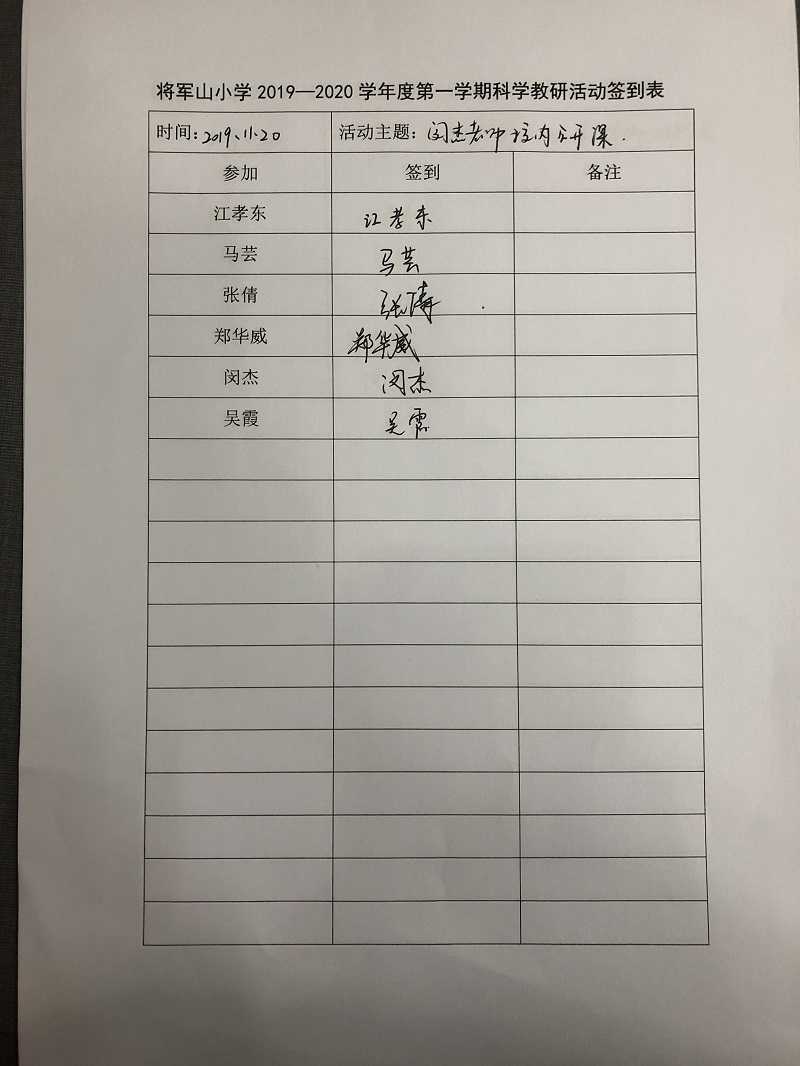 将军山小学 2019—2020 学年度第一学期科学教研活动签到表
时间：2019、11.20 活动主题：闵杰老师校内公开课.
参加 签到 备注
江孝东 江孝东
马芸 马芸
张倩 张倩
郑华威 郑华威
闵杰 闵杰
吴霞 吴霞